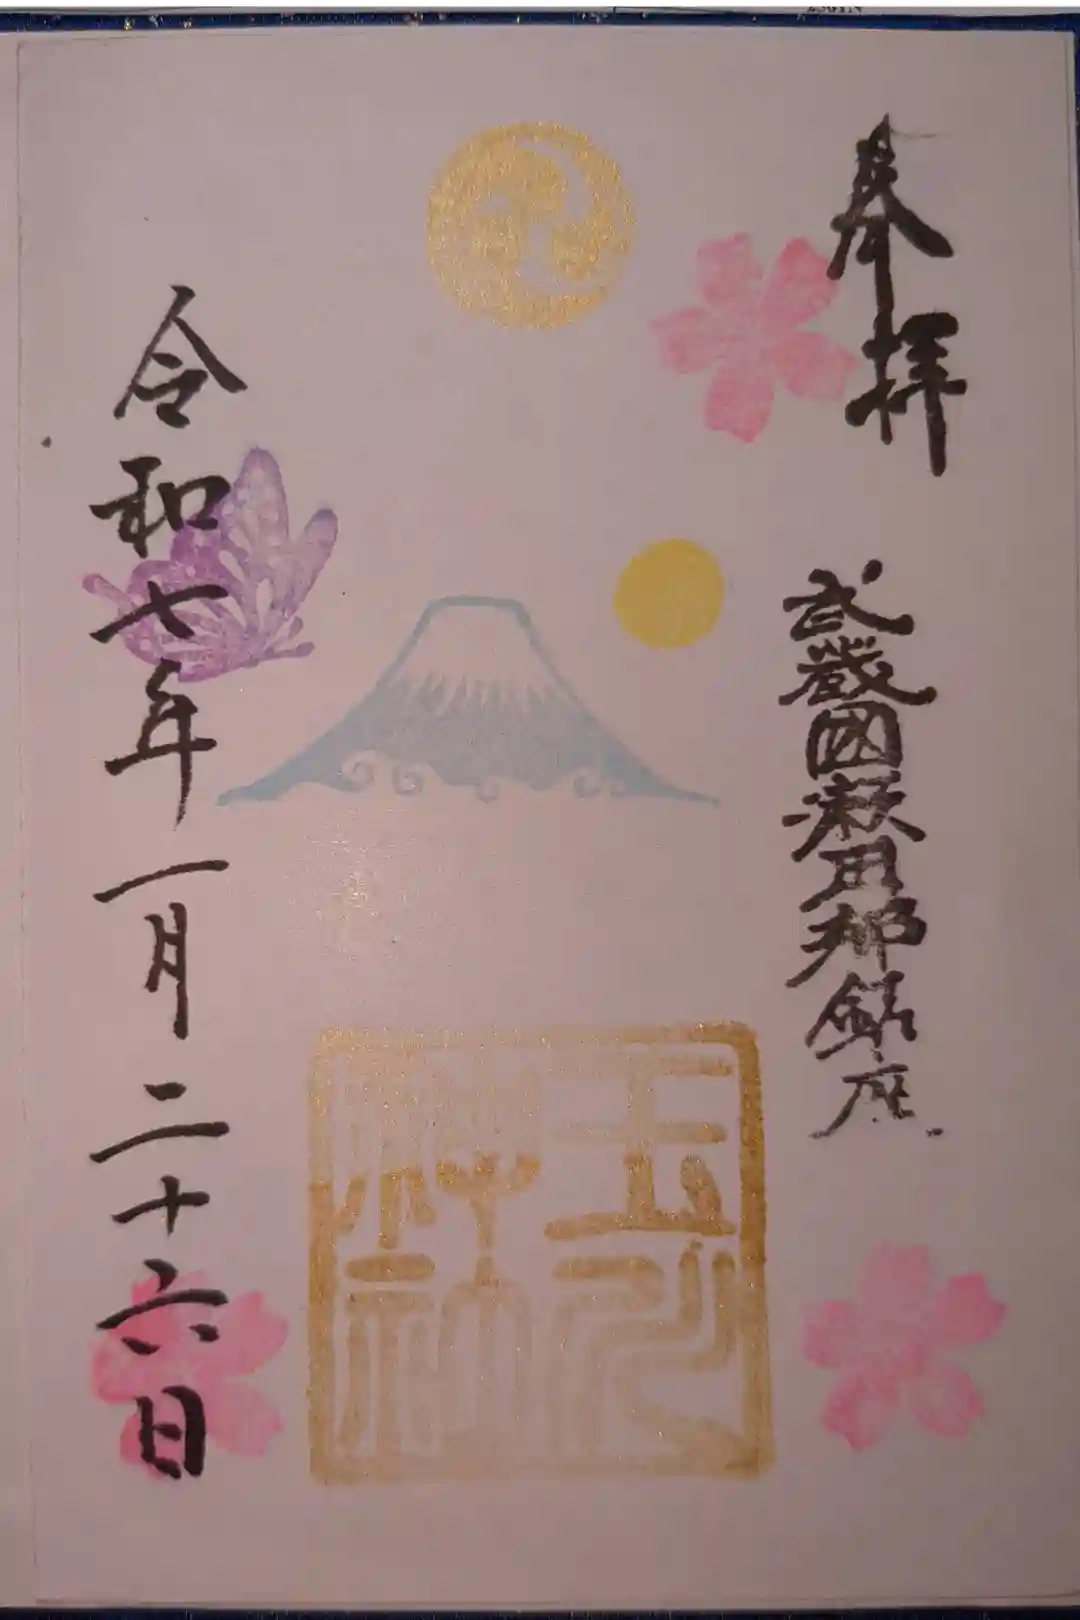 奉拝
武蔵國瀬田郷鎮座
玉川
神社
令和七年一月二十六日